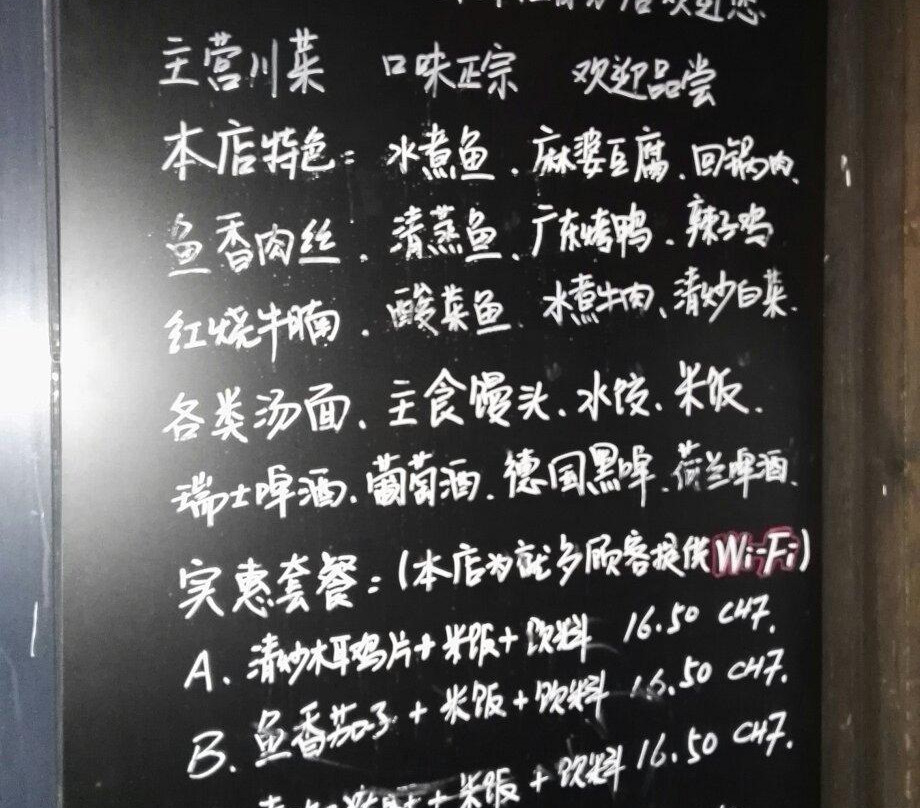 欢迎您
主营川菜 口味正宗 欢迎品尝
本店特色：水煮鱼、麻婆豆腐、回锅肉、
鱼香肉丝、清蒸鱼、广东烤鸭、辣子鸡
红烧牛腩、酸菜鱼、水煮牛肉、清炒白菜、
各类汤面、主食馒头、水饺、米饭、
瑞士啤酒、葡萄酒、德国黑啤、荷兰啤酒、
实惠套餐：（本店为就多顾客提供Wi-Fi）
A. 清炒木耳鸡片+米饭+饮料 16.50 CHF.
B. 鱼香茄子+米饭+饮料 16.50 CHF.
+米饭+饮料 16.50 CHF.